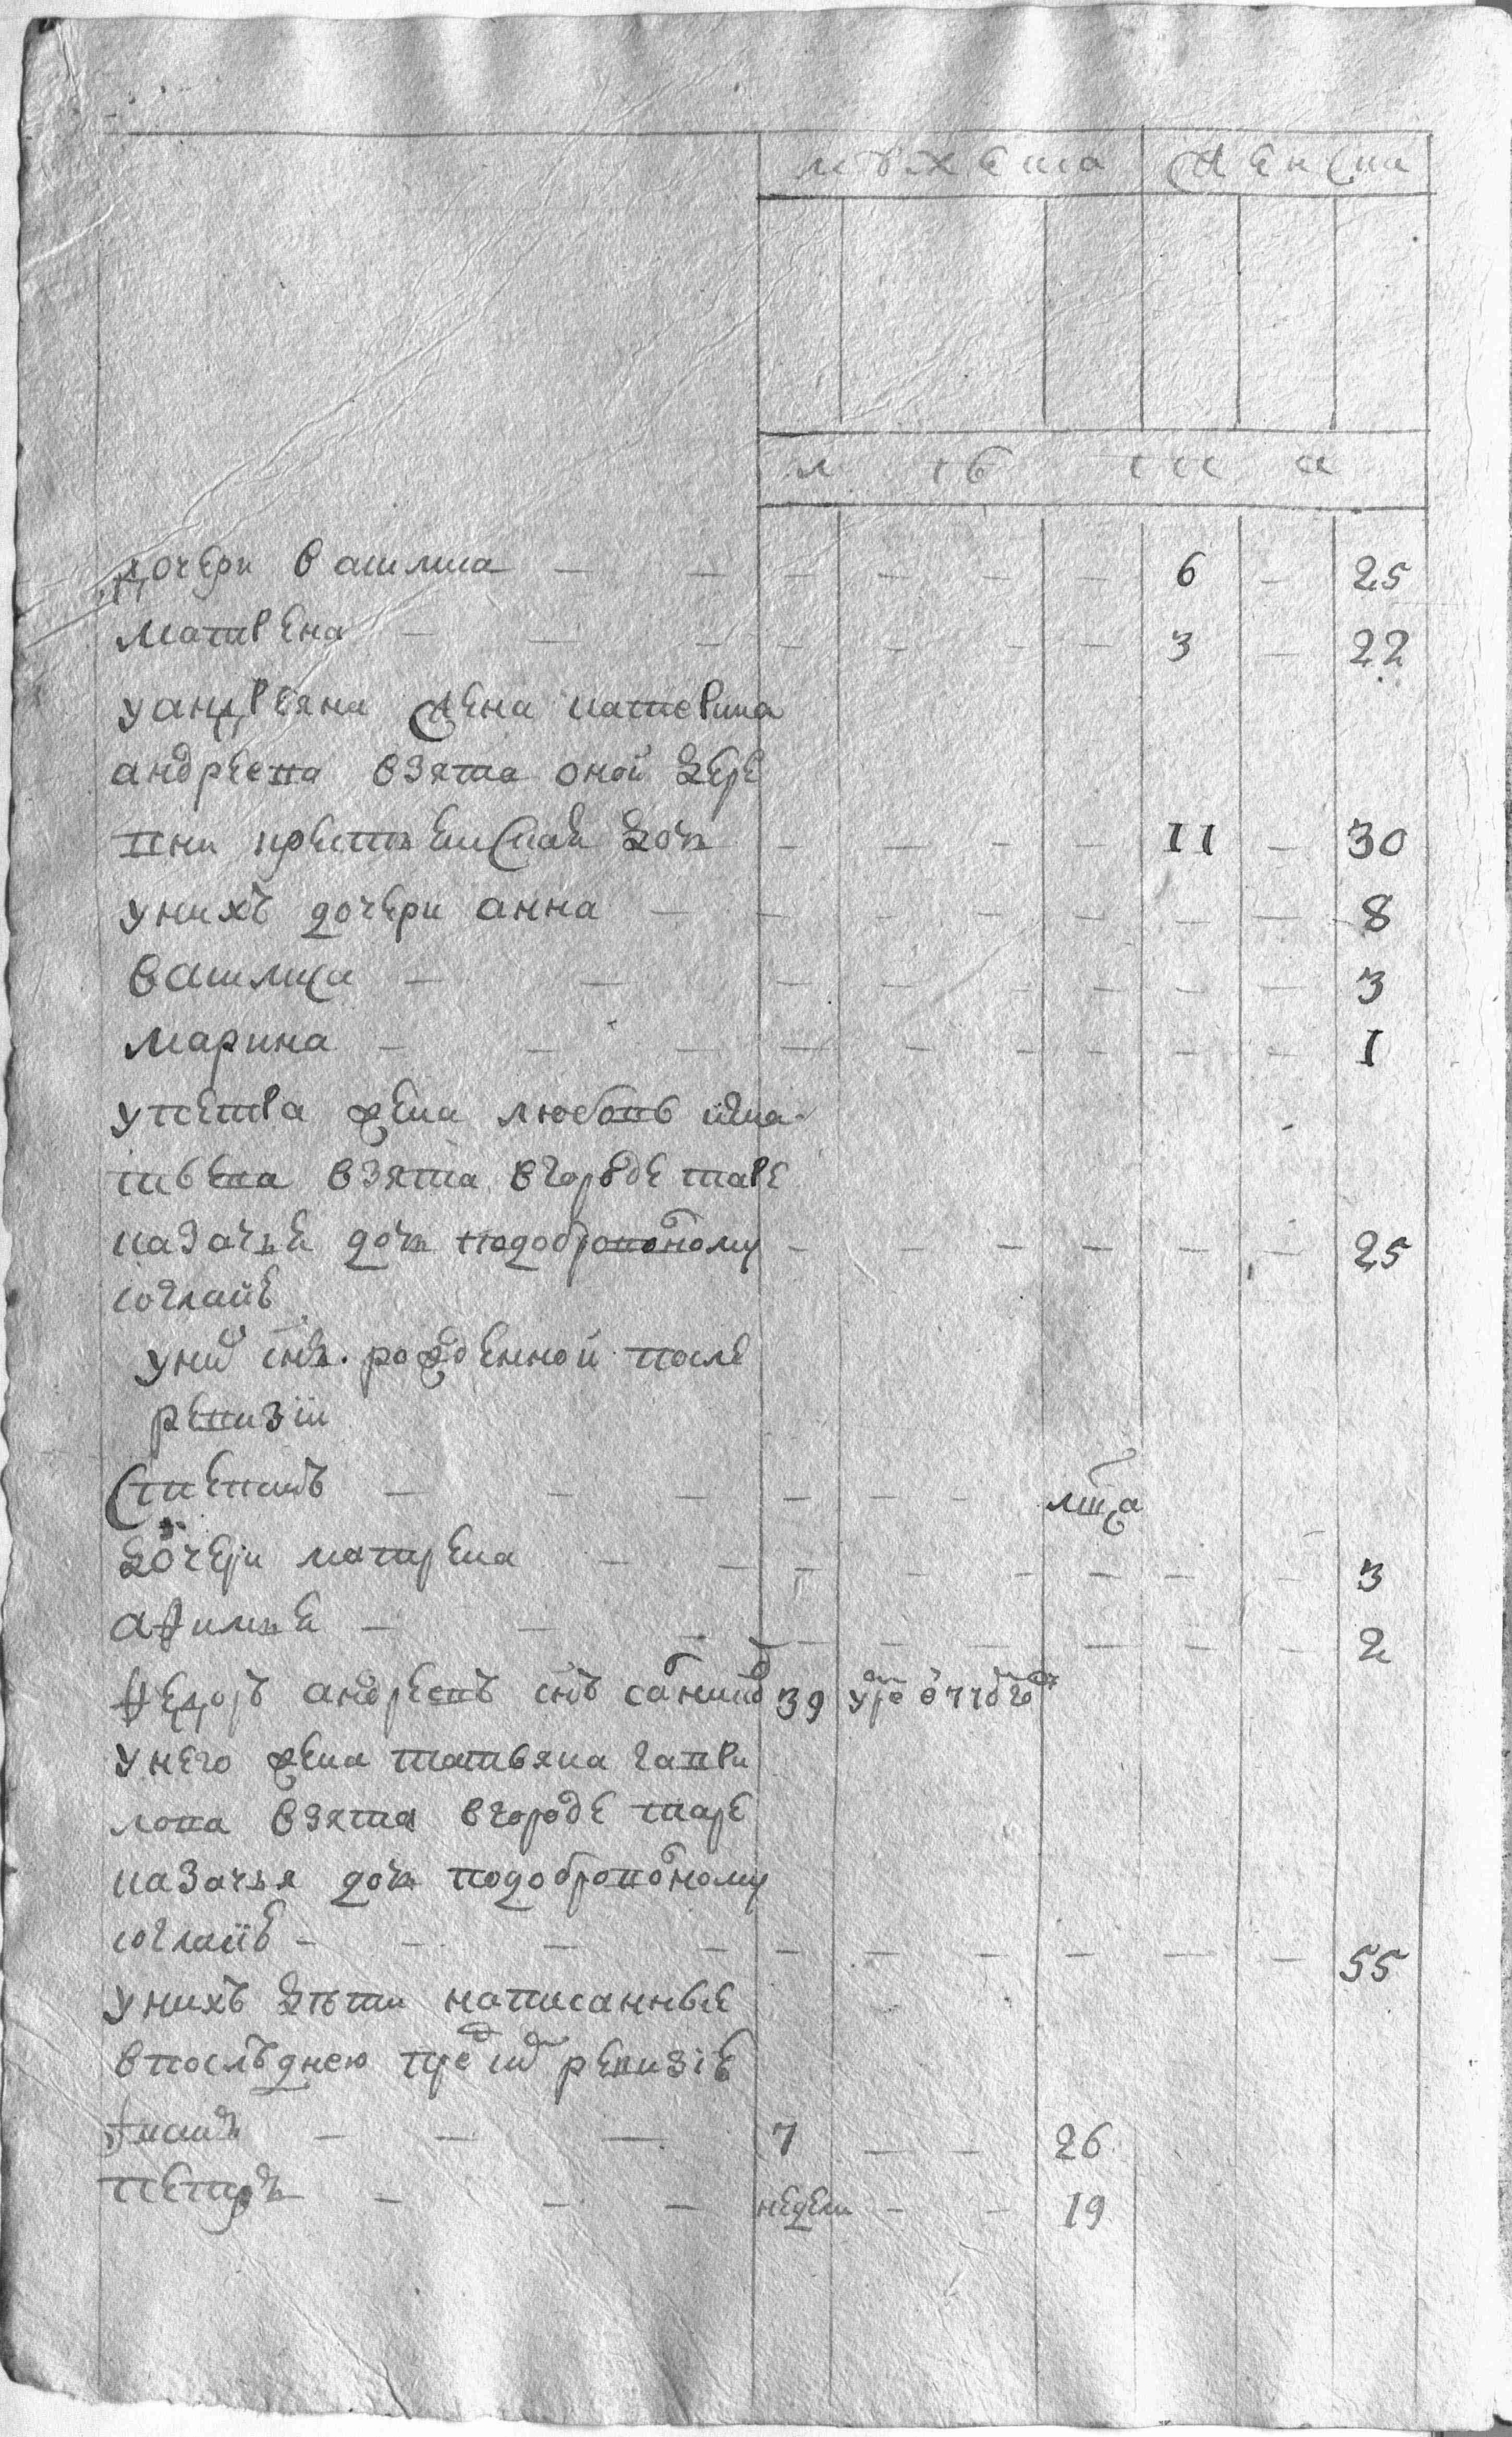 мужеска женска
л ѣ т а
дочери василиса — — — — — — 6 — 25
матрена — — — — — — — 3 — 22
уандреяна жена катерина
андреева взята оной дере
вни крестьянская дочь — — — — 11 — 30
унихъ дочери анна — — — — — — — — 8
василиса — — — — — — — — — 3
марина — — — — — — — — — — 1
упетра жена любовь игна
тьева взята вгороде таре
казачья дочь подобровоному — — — — — — 25
согласию
уних снъ рожденной после
ревизии
степанъ — — — — — — мца
дочери матрена — — — — — — — — 3
афимья — — — — — — — — — 2
федоръ андреевъ снъ 39
унего жена татьяна гаври
лова взята вгороде таре
казачья дочь подобровоному
согласию — — — — — — — — — — 55
унихъ дети написанные
впоследнею пред сим ревизие
— — — 7 — — 26
петръ — — — недели — — 19